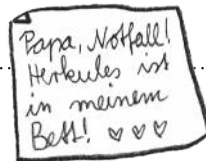 Papa, Notfall!
Herkules ist
in meinem
Bett! ♡♡♡